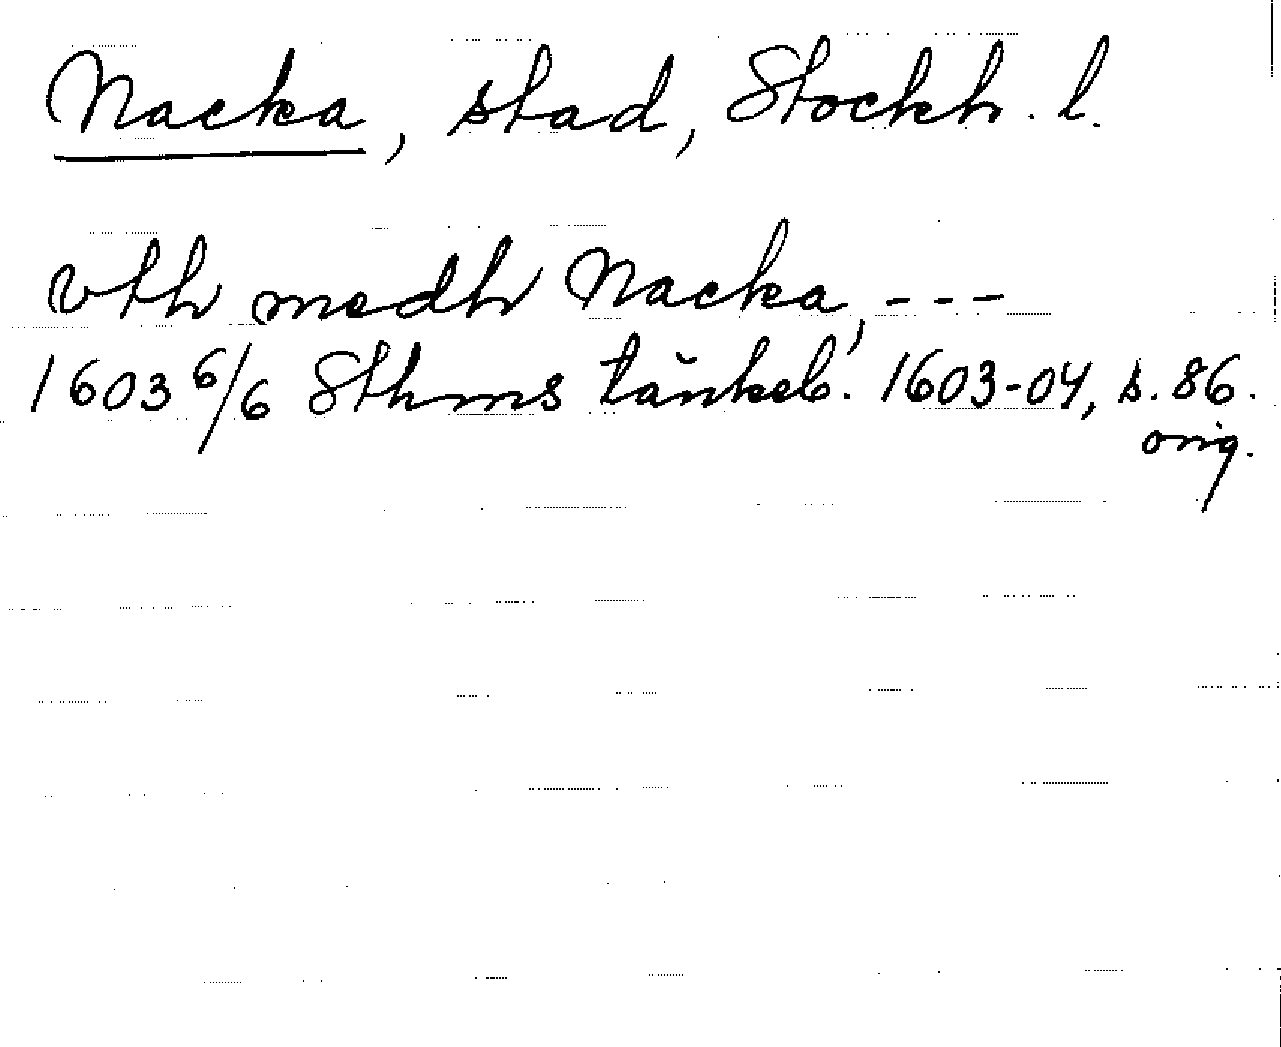 Nacka, stad, Stockh. l.
vth medh Nacka, - - -
1603 6/6 Sthms tänkeb. 1603-04, s. 86.
orig.